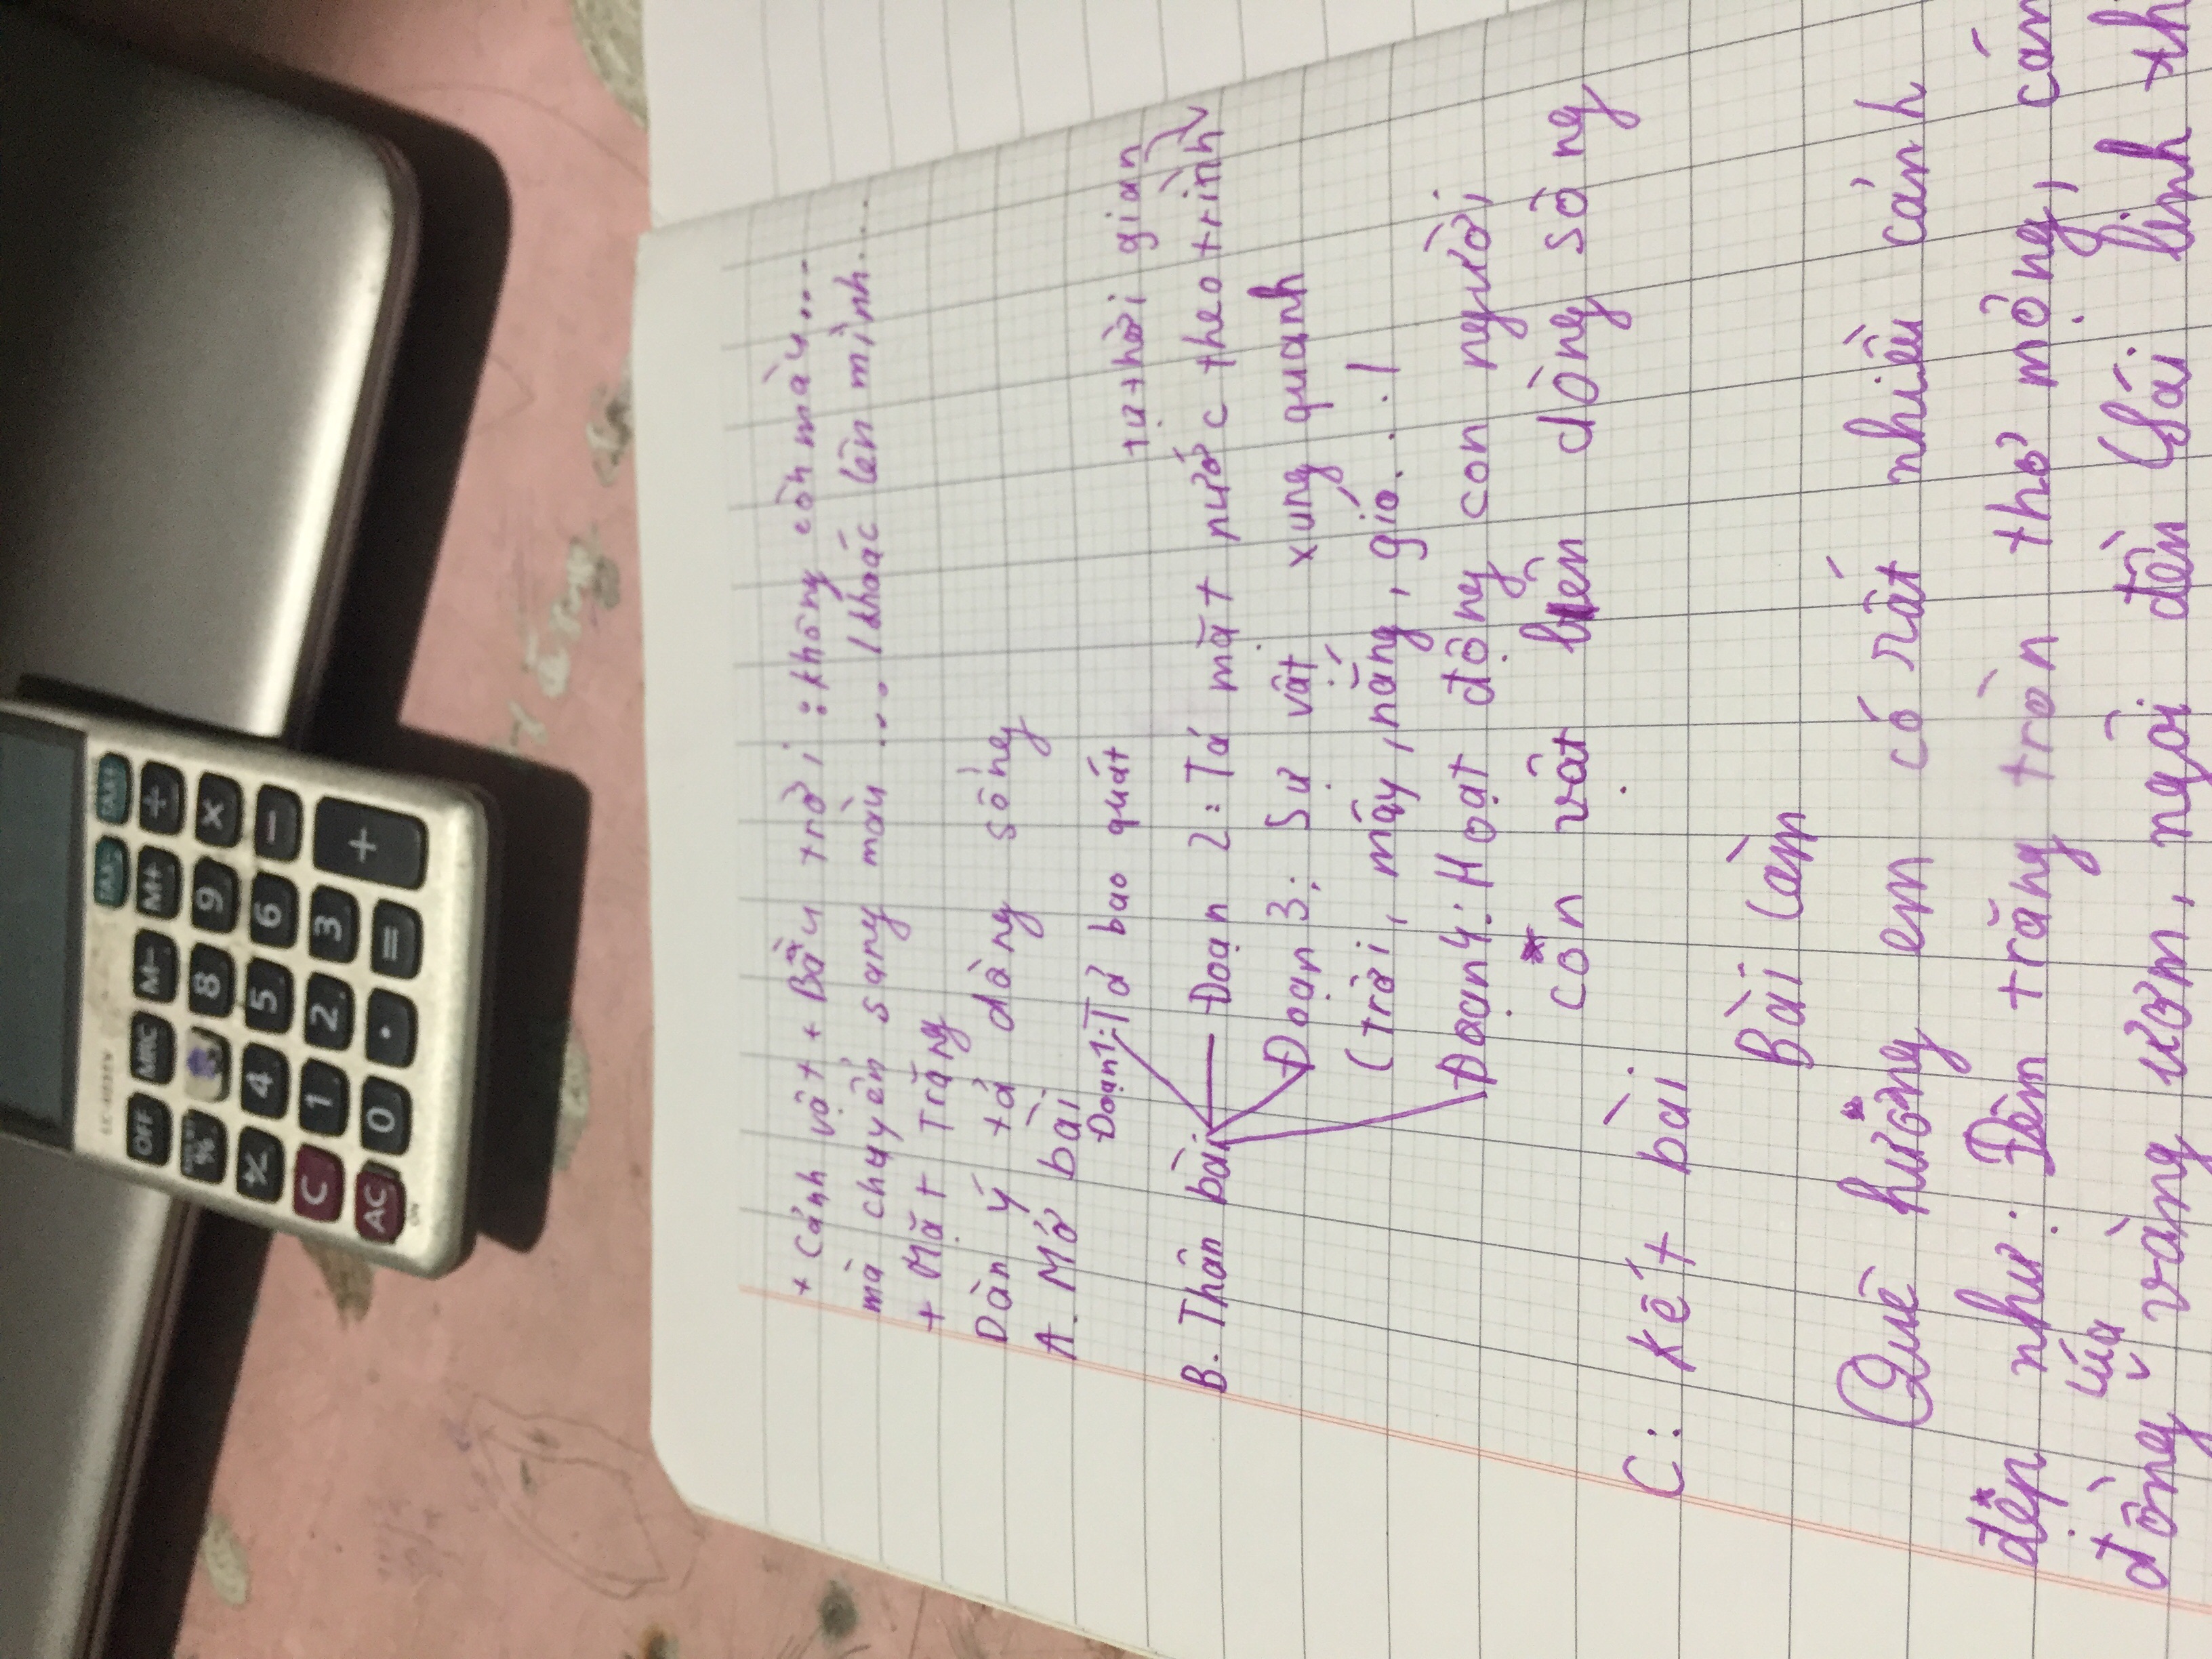 + Cảnh vật + Bầu trời : không còn màu....
mà chuyển sang màu .... / khoác lên mình...
+ Mặt Trăng
Dàn ý tả dòng sông
A. Mở bài
Đoạn 1: Tả bao quát
tự thời gian
B. Thân bài Đoạn 2: Tả mặt nước theo trình
Đoạn 3: Sự vật xung quanh
(trời, mây, nắng, gió...)
Đoạn 4: Hoạt động con người,
con vật bên dòng sông
C: Kết bài
Bài làm
Quê hương em có rất nhiều cảnh
đẹp như: Đêm trăng tròn thơ mộng, cán
lúa
đồng vàng ươm, ngôi đền linh th
OFF MRC M- M+ ÷
TAX- TAX+
% 8 9 ×
+/- 4 5 6 -
C 1 2 3 +
AC 0 . =
ON